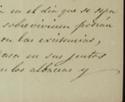 en el dia que se sepa
sobrevivieren podrán
en las existencias,
en sus justos
los albaceas y